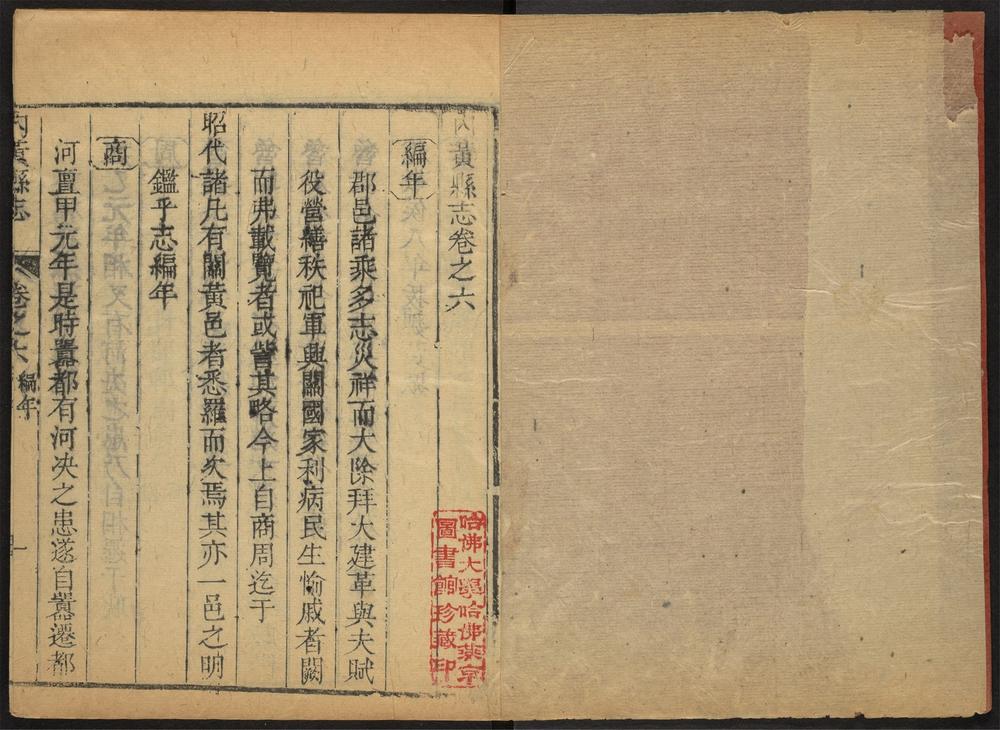 內黃縣志卷之六
編年
郡邑諸乘多志災祥而大除拜大建革與夫賦
役營繕秩祀軍興關國家利病民生愉戚者闕
而弗載覽者或訾其略今上自商周迄于
昭代諸凡有關黃邑者悉羅而次焉其亦一邑之明
鑑乎志編年
商
河亶甲元年是時囂都有河决之患遂自囂遷都
內黃縣志
卷之六
編年
一
哈佛大學哈佛燕京
圖書館珍藏印